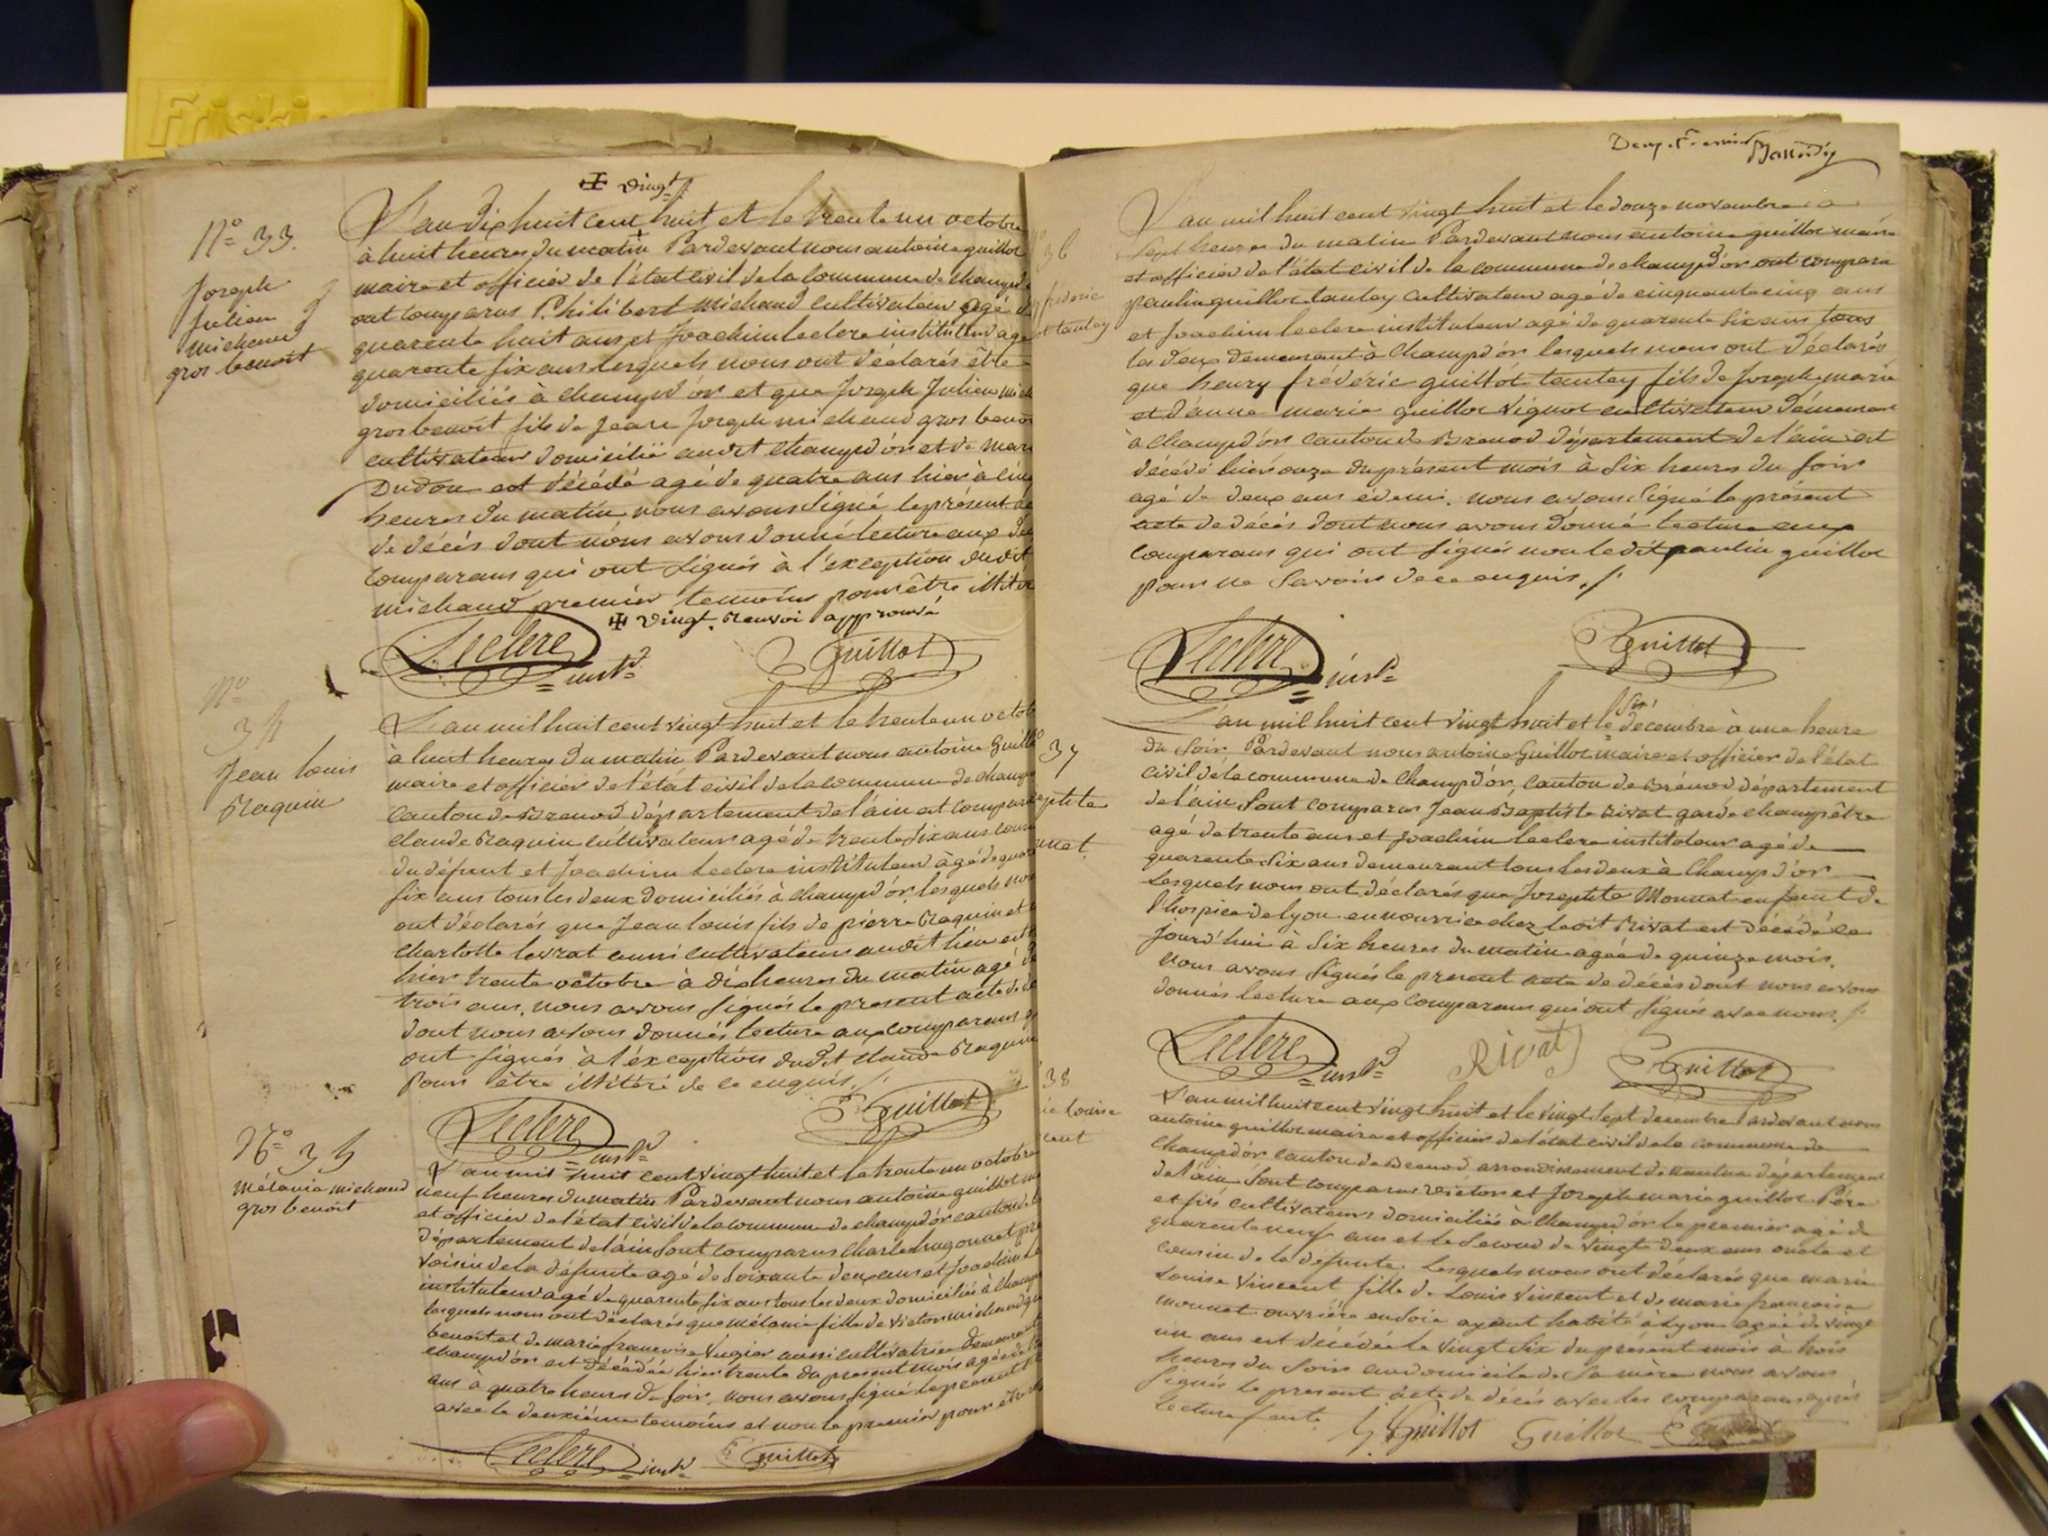 Friskies
✠ vingt
N° 33.
Joseph
Julien
michaud
gros benoit
L'an dix huit cent huit et le trente un octobre
à huit heures du matin Pardevant nous antoine guillot
maire et officier de l'état civil de la commune de champd
ont comparus Philibert michaud cultivateur agé de
quarente huit ans et Joachim leclere instituteur agé
quarente six ans lesquels nous ont déclarés être
domiciliés à champd'or et que Joseph Julien mich
gros benoit fils de Jean Joseph michaud gros benoi
cultivateur domicilié audit champd'or et de mari
Dudou est décédé agé de quatre ans hier à cinq
heures du matin nous avons signé le présent ac
de décès dont nous avons donné lecture aux dits
comparans qui ont signés à l'exception dudit
michaud premier temoins pour être illitér
✠ vingt. Renvoi approuvé
Leclere instr
Guillot
N°
34
Jean louis
Raquin
L'an mil huit cent vingt huit et le trente un octob
à huit heures du matin Pardevant nous antoine Guillo
maire et officier de l'état civil de la commune de champ
canton de Brenod département de l'ain est comparu
claude Raquin cultivateur agé de trente six ans cousin
du défunt et Joachim leclere instituteur àgé de quare
six ans tous les deux domiciliés à champd'or, lesquels nou
ont déclarés que Jean louis fils de pierre Raquin et
charlotte levrat aussi cultivateurs audit lieu est
hier trente octobre à dix heures du matin agé de
trois ans, nous avons signés le present acte de dé
dont nous avons donnés lecture aux comparans q
ont signés à l'exception dudit claude Raquin
pour être illitéré de ce enquis. /.
Leclere instr
Guillot
N° 35
mélanie michaud
gros benoit
L'an mil huit cent vingt huit et le trente un octobre
neuf heures du matin Pardevant nous antoine guillot m
et officier de l'état civil de la commune de champd'or canton de
département de l'ain sont comparus Charles hugonnet pro
voisin de la défunte agé de soixante deux ans et Joachim le
instituteur agé de quarente six ans tous les deux domiciliés à champ
lesquels nous ont déclarés que mélanie fille de victor michaud gr
benoit et de marie françoise Vugier aussi cultivatrice demeurant
champd'or est décédée hier trente du present mois agée de
ans à quatre heures du soir, nous avons signé le present
avec le deuxième temoins et non le premier pour être
Leclere instr
Guillot
36
fréderic
tantay
L'an mil huit cent vingt huit et le douze novembre a
sept heures du matin Pardevant nous antoine guillot maire
et officier de l'état civil de la commune de champd'or ont compara
paulin guillot tantay cultivateur agé de cinquante cinq ans
et Joachim leclere instituteur agé de quarente six ans tous
les deux demeurant à Champd'or lesquels nous ont déclarés
que henry frédéric guillot tantay fils de Joseph marie
et d'anne marie guillot vignot cultivateur demeurant
à champd'or canton de Brenod département de l'ain est
décédé hier onze du présent mois à six heures du soir
agé de deux ans et demi. nous avons signé le présent
acte de décès dont nous avons donné lecture aux
comparans qui ont signés non ledit paulin guillot
pour ne savoir de ce enquis. /.
Leclere instr
Guillot
37
eptite
nnat.
L'an mil huit cent vingt huit et le six décembre à une heure
du soir Pardevant nous antoine Guillot maire et officier de l'état
civil de la commune de Champd'or, canton de Brénod département
de l'ain sont comparus Jean Baptiste Rivat garde champêtre
agé de trente ans et Joachim leclere instituteur agé de
quarente six ans demeurant tous les deux à Champ d'or
Lesquels nous ont déclarés que Joseptite Monnat enfant de
l'hospice de lyon en nourrice chez ledit Rivat est décédé ce
jourd'hui à six heures du matin agée de quinze mois.
nous avons signés le present acte de décès dont nous avons
donnés lecture aux comparans qui ont signés avec nous. /.
Leclere instr
Rivat
Guillot
38
ie louise
cent
L'an mil huit cent vingt huit et le vingt sept decembre Pardevant nous
antoine guillot maire et officier de l'état civil de la commune de
champd'or canton de Brenod arrondissement de nantua département
de l'ain sont comparus victor et Joseph marie guillot Père
et fils cultivateurs domiciliés à champd'or le premier agé de
quarente neuf ans et le second de vingt deux ans oncle et
cousin de la défunte. lesquels nous ont déclarés que marie
Louise Vincent fille de Louis Vincent et de marie françoise
monnet ouvrière en soie ayant habité à lyon agée de vingt
un ans est décédée le vingt six du présent mois à trois
heures du soir au domicile de sa mère nous avons
signés le present acte de décès avec les comparans après
lecture faite
Guillot Guillot